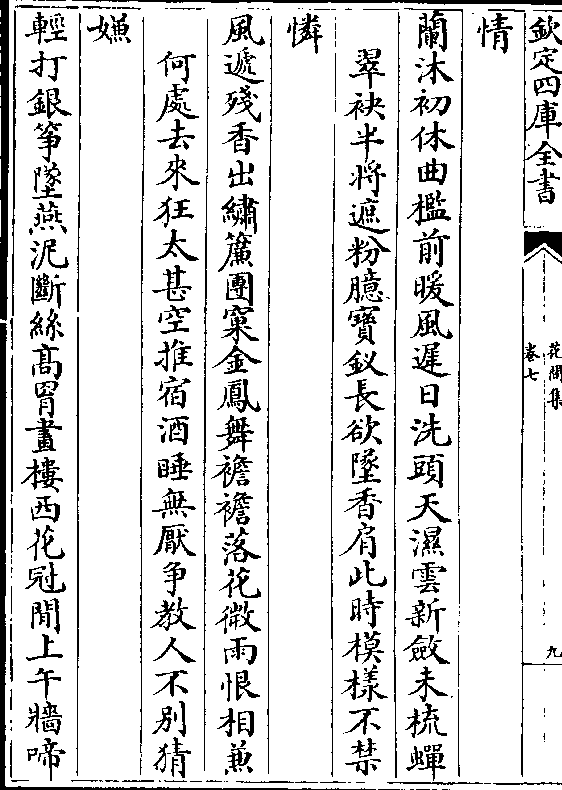 欽定四庫全書
花間集
卷七
九
情
蘭沐初休曲檻前暖風遲日洗頭天濕雲新斂未梳蟬
翠袂半將遮粉臆寶釵長欲墜香肩此時模樣不禁
憐
風遞殘香出繡簾團窠金鳳舞襜襜落花微雨恨相兼
何處去來狂太甚空推宿酒睡無厭爭教人不別猜
嫌
輕打銀箏墜燕泥斷絲高罥畫樓西花冠閒上午牆啼